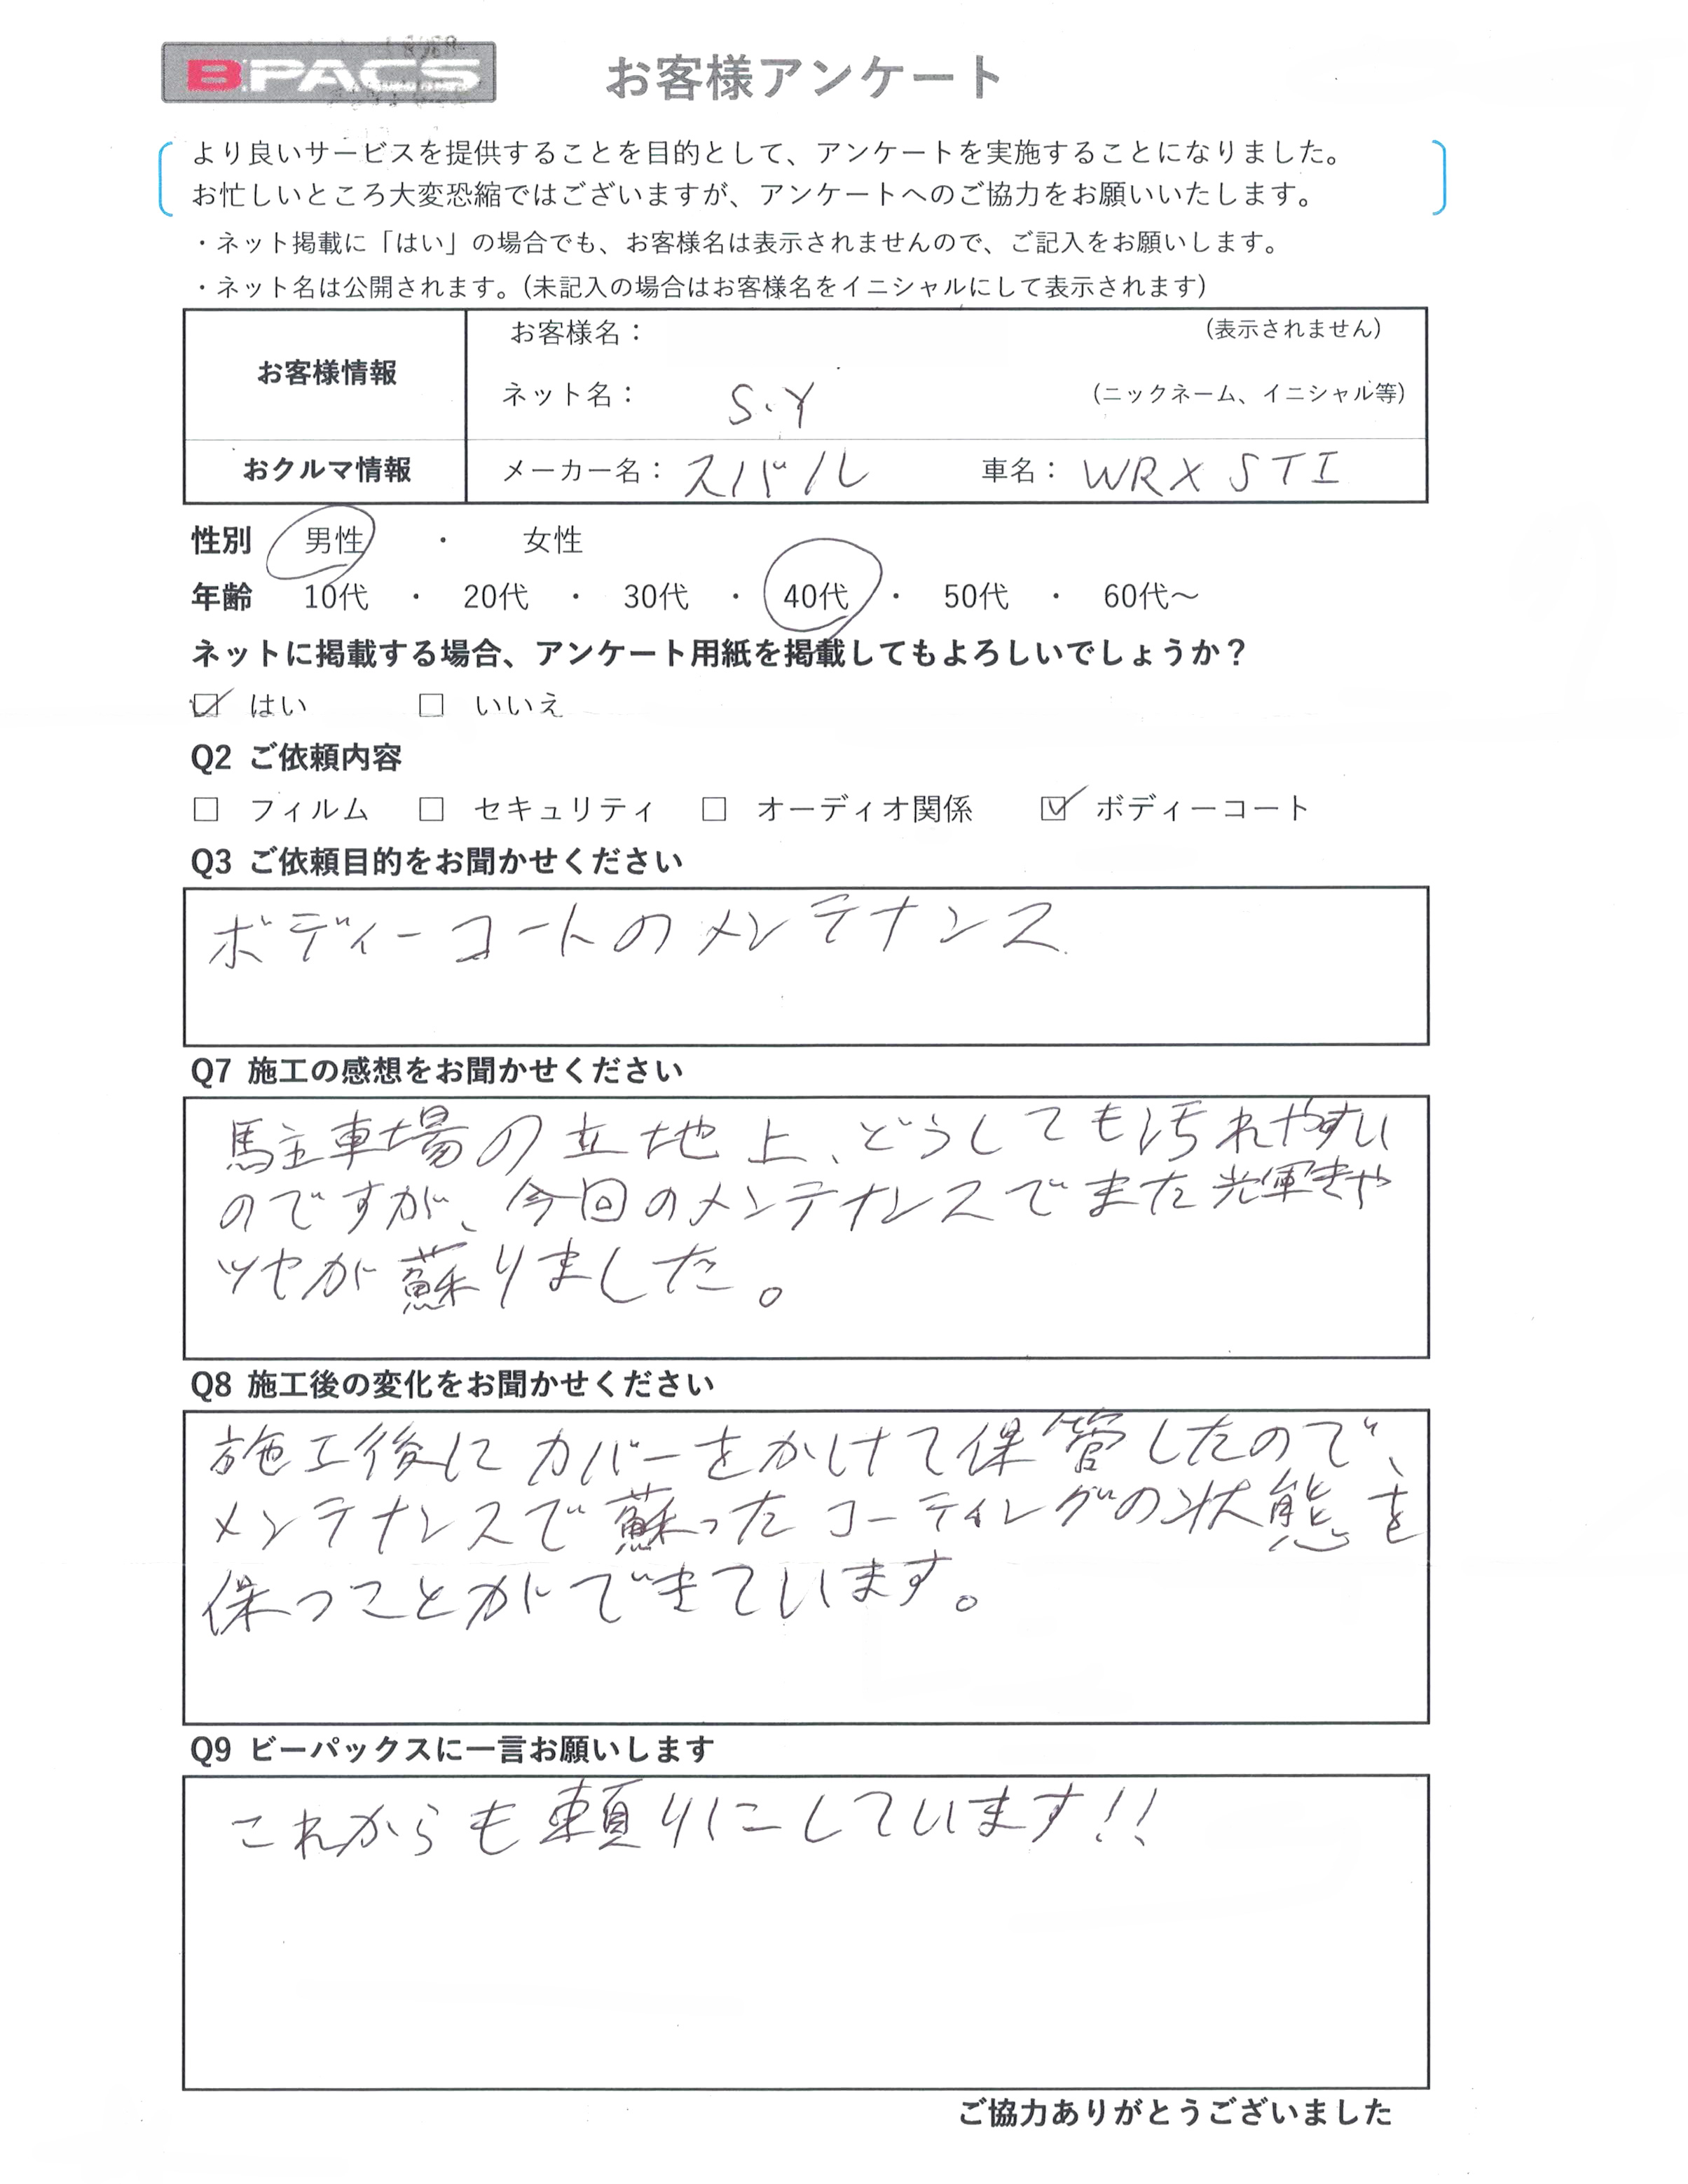 B.PACS お客様アンケート
より良いサービスを提供することを目的として、アンケートを実施することになりました。
お忙しいところ大変恐縮ではございますが、アンケートへのご協力をお願いいたします。
・ネット掲載に「はい」の場合でも、お客様名は表示されませんので、ご記入をお願いします。
・ネット名は公開されます。(未記入の場合はお客様名をイニシャルにして表示されます)
お客様情報
お客様名： (表示されません)
ネット名： S.Y (ニックネーム、イニシャル等)
おクルマ情報 メーカー名：スバル 車名：WRX STI
性別 男性 ・ 女性
年齢 10代 ・ 20代 ・ 30代 ・ 40代 ・ 50代 ・ 60代～
ネットに掲載する場合、アンケート用紙を掲載してもよろしいでしょうか？
☑ はい □ いいえ
Q2 ご依頼内容
□ フィルム □ セキュリティ □ オーディオ関係 ☑ ボディーコート
Q3 ご依頼目的をお聞かせください
ボディーコートのメンテナンス
Q7 施工の感想をお聞かせください
駐車場の立地上、どうしても汚れやすい
のですが、今回のメンテナンスでまた輝きや
ツヤが蘇りました。
Q8 施工後の変化をお聞かせください
施工後にカバーをかけて保管したので、
メンテナンスで蘇ったコーティングの状態を
保つことができています。
Q9 ビーパックスに一言お願いします
これからも頼りにしています!!
ご協力ありがとうございました